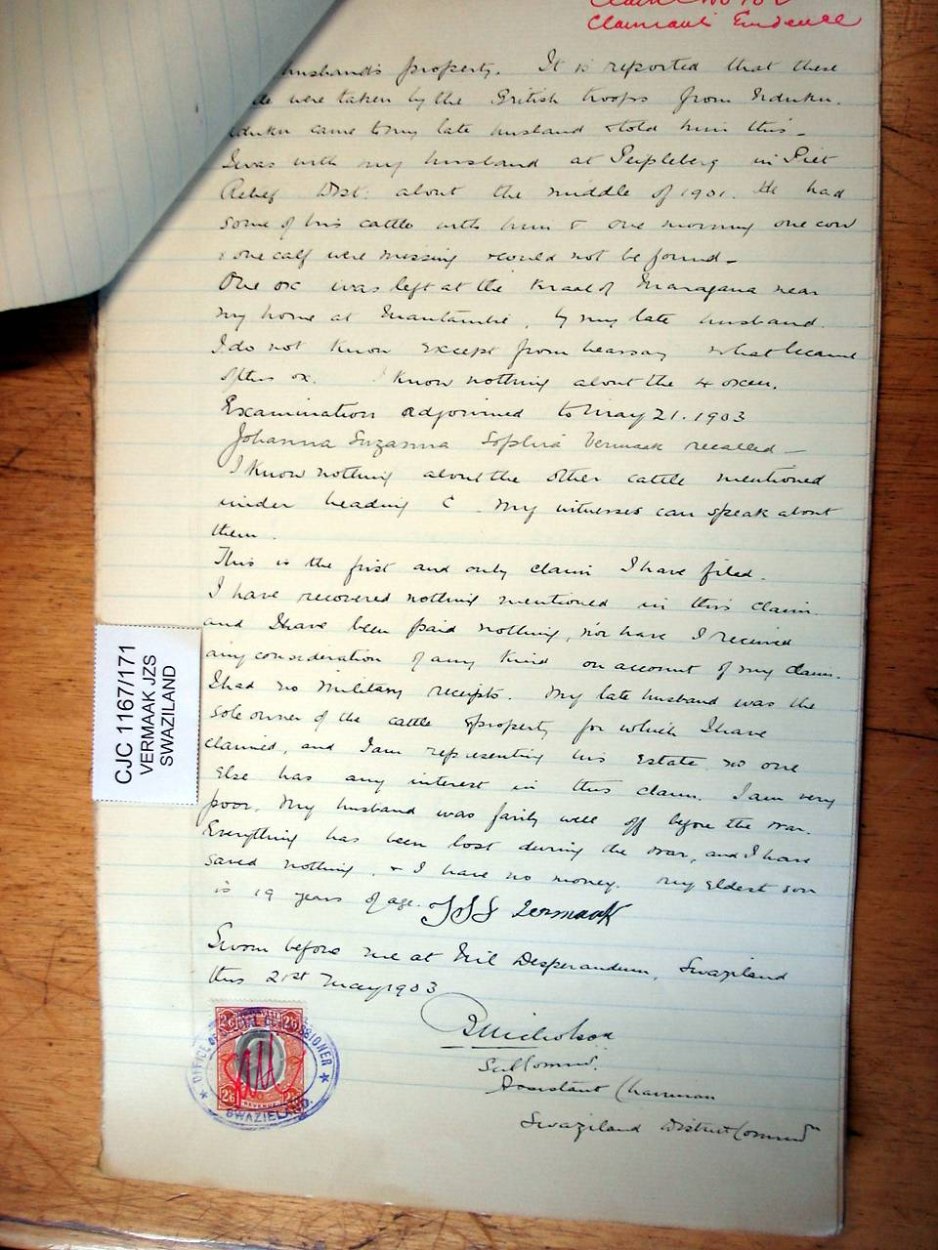 Claimant's Evidence
husband's property. It is reported that these
were taken by the British troops from Nduku.
Nduku came to my late husband & told him this -
I was with my husband at in Piet
Relief Dist. about the middle of 1901. He had
some of his cattle with him & one morning one cow
& one calf were missing & could not be found -
One ox was left at the Kraal of near
my home at , by my late husband.
I do not know except from hearsay what became
of this ox. I know nothing about the 4 oxen.
Examination adjourned to May 21. 1903
Johanna Suzanna Sophia Vermaak recalled -
I know nothing about the other cattle mentioned
under heading C. My witnesses can speak about
them.
This is the first and only claim I have filed.
I have recovered nothing mentioned in this claim
and I have been paid nothing, nor have I received
any consideration of any kind on account of my claim.
I had no Military receipts. My late husband was the
sole owner of the cattle & property for which I have
claimed, and I am representing his Estate. No one
else has any interest in this claim. I am very
poor. My husband was fairly well off before the war.
Everything has been lost during the war, and I have
saved nothing, & I have no money. My eldest son
is 19 years of age. JSS Vermaak
Sworn before me at Nil Desperandum, Swaziland
this 21st May 1903
Nicholson
Sub Commr.
Assistant Chairman
Swaziland District Commn
CJC 1167/171
VERMAAK JZS
SWAZILAND
OFFICE OF
SWAZIELAND.
2/6 2/6
REVENUE
2/6 2/6